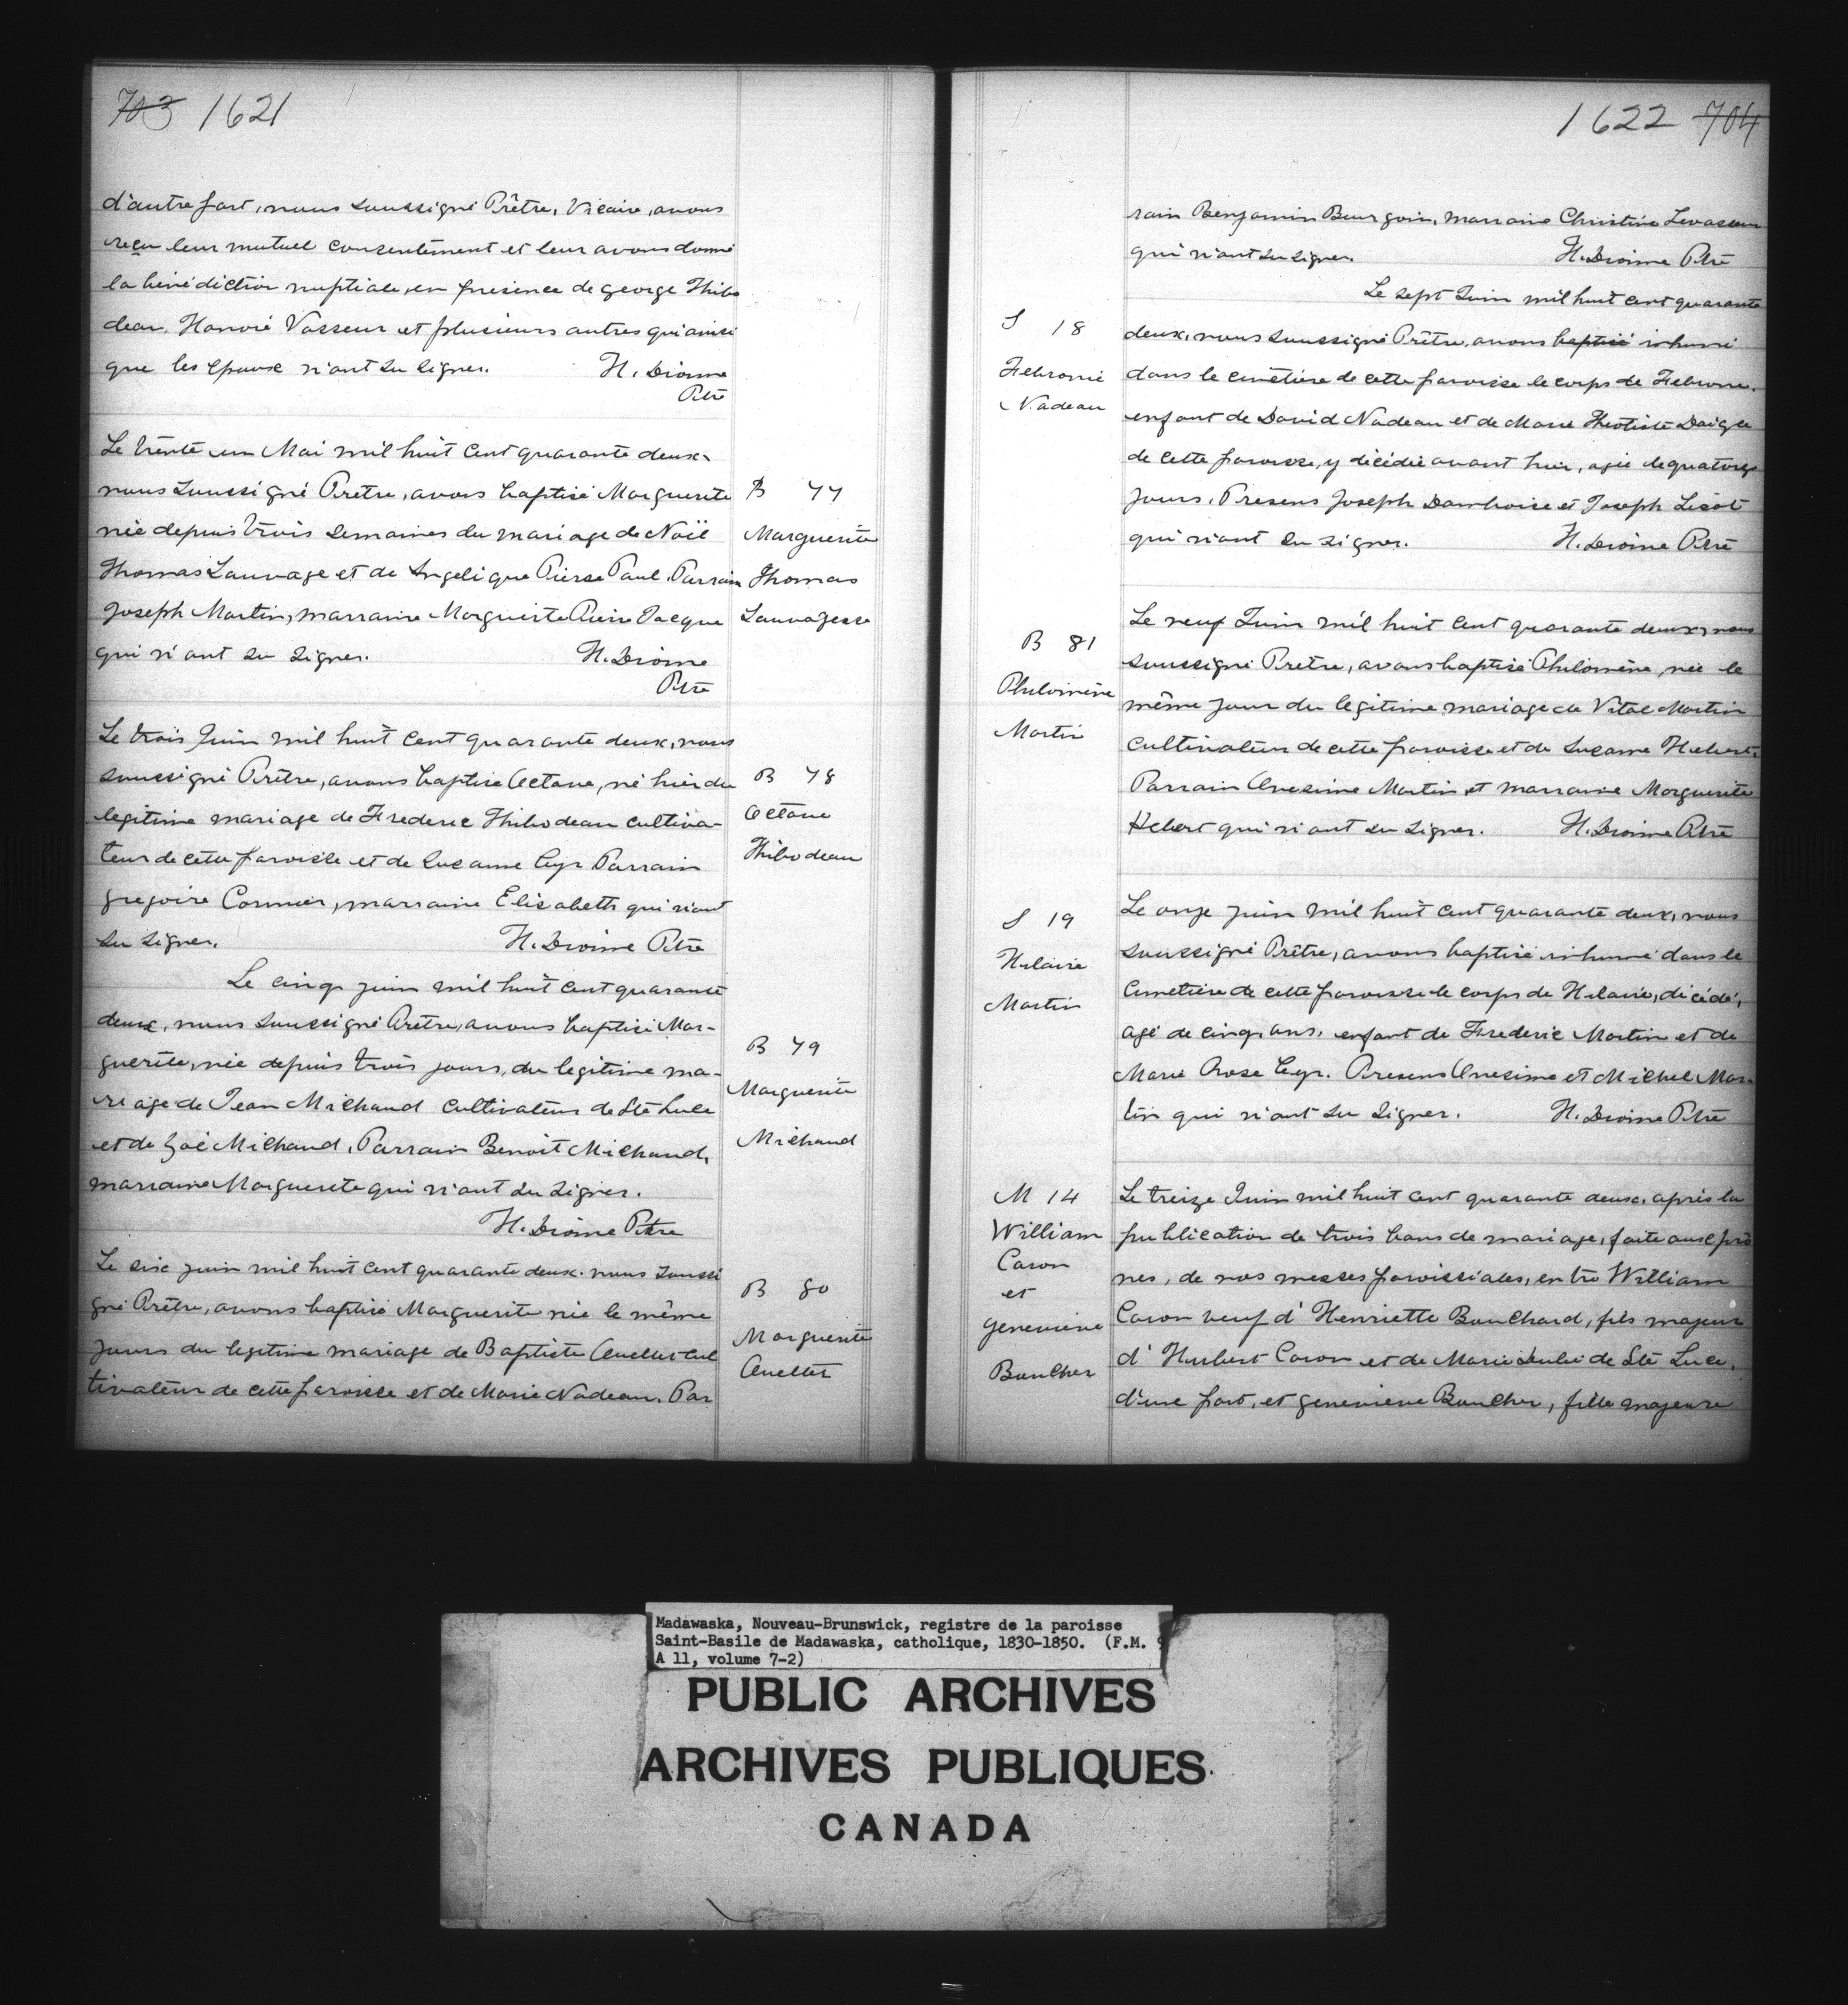 703 1621
d'autre part, nous soussigné Prêtre, Vicaire, avons
reçu leur mutuel consentement et leur avons donné
la bénédiction nuptiale, en presence de george Thibo
deau, Honoré Vasseur et plusieurs autres qui ainsi
que les epoux n'ont su signer. H. Dionne
Ptre
Le trente un Mai mil huit cent quarante deux,
nous soussigné Prêtre, avons baptisé Marguerite
née depuis trois semaines du mariage de Noël
Thomas Sauvage et de Angelique Pierre Paul. Parrain
Joseph Martin, marraine Marguerite Pierre Jacque
qui n'ont su signer. H. Dionne
Ptre
B 77
Marguerite
Thomas
Sauvagesse
Le trois Juin mil huit cent quarante deux, nous
soussigné Prêtre, avons baptisé Octave, né hier du
legitime mariage de Frederic Thibodeau cultiva-
teur de cette paroisse et de Suzanne Cyr Parrain
gregoire Cormier, marraine Elisabeth qui n'ont
su signer. H. Dionne Ptre
B 78
Octave
Thibodeau
Le cinq juin mil huit cent quarante
deux, nous soussigné Prêtre, avons baptisé Mar-
guerite, née depuis trois jours, du legitime ma-
riage de Jean Michaud cultivateur de Ste Luce
et de Zoé Michaud, Parrain Benoit Michaud,
marraine Marguerite qui n'ont su signer.
H. Dionne Ptre
B 79
Marguerite
Michaud
Le six juin mil huit cent quarante deux. nous soussi
gné Prêtre, avons baptisé Marguerite née le même
jours du legitime mariage de Baptiste Ouellet cul
tivateur de cette paroisse et de Marie Nadeau. Par
B 80
Marguerite
Ouellet
1622 704
rain Benjamin Bourgoin, marraine Christine Levasseur
qui n'ont su signer. H. Dionne Ptre
Le sept Juin mil huit cent quarante
deux, nous soussigné Prêtre, avons baptisé inhumé
dans le cimetière de cette paroisse le corps de Febronie.
enfant de David Nadeau et de Marie Theotiste Daigle
de cette paroisse, y décédée avant hier, agée de quatorze
jours. Presens Joseph Damboise et Joseph Lizot
qui n'ont su signer. H. Dionne Ptre
S 18
Febronie
Nadeau
Le neuf Juin mil huit cent quarante deux, nous
soussigné Prêtre, avons baptisé Philomène, née le
même jour du legitime mariage de Vital Martin
cultivateur de cette paroisse et de Suzanne Hebert.
Parrain Onesime Martin et marraine Marguerite
Hebert qui n'ont su signer. H. Dionne Ptre
B 81
Philomène
Martin
Le onze juin mil huit cent quarante deux, nous
soussigné Prêtre, avons baptisé inhumé dans le
Cimetière de cette paroisse le corps de Hilaire, décédé,
agé de cinq ans, enfant de Frederic Martin et de
Marie Rose Cyr. Presens Onesime et Michel Mar-
tin qui n'ont su signer. H. Dionne Ptre
S 19
Hilaire
Martin
Le treize Juin mil huit cent quarante deux, après la
publication de trois bans de mariage, faite aux prô
nes, de nos messes paroissiales, entre William
Caron veuf d'Henriette Bouchard, fils majeur
d'Hubert Caron et de Marie Dubé de Ste Luce,
d'une part, et genevieve Boucher, fille majeure
M 14
William
Caron
et
genevieve
Boucher
Madawaska, Nouveau-Brunswick, registre de la paroisse
Saint-Basile de Madawaska, catholique, 1830-1850. (F.M. 9
A 11, volume 7-2)
PUBLIC ARCHIVES
ARCHIVES PUBLIQUES
CANADA